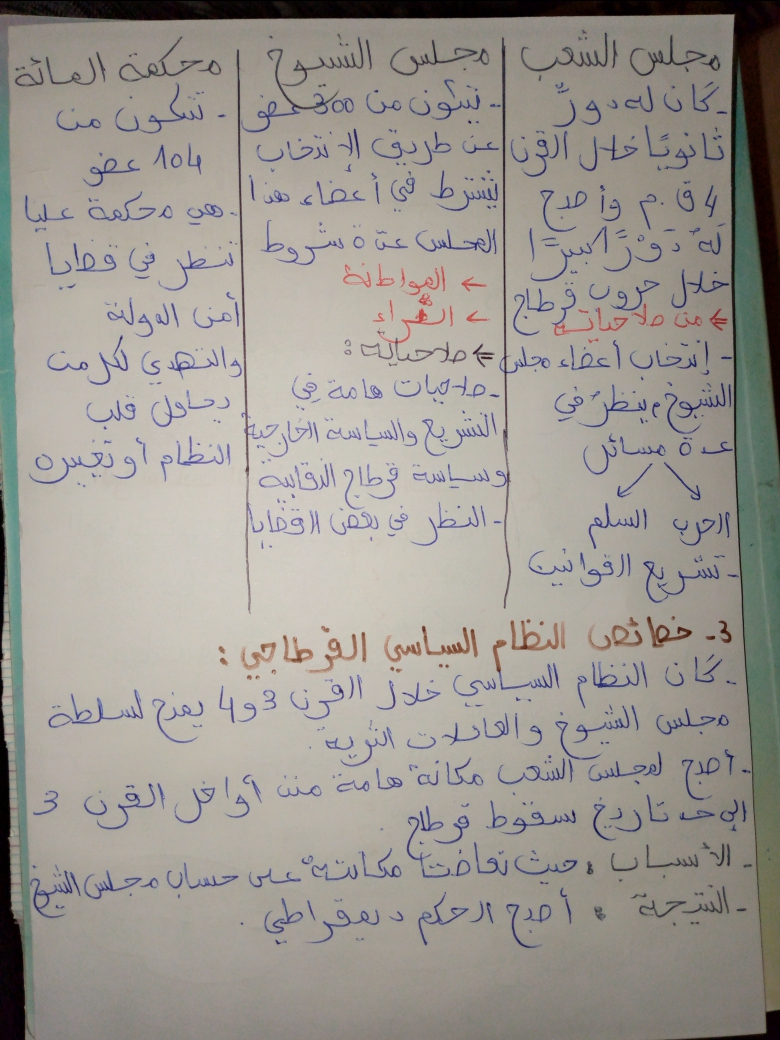 مجلس الشعب
- كان له دورٌ
ثانويًا خلال القرن
4 ق.م وأصبح
لهُ دَوْرًا كبيرًا
خلال حروب قرطاج
⇐ من صلاحياته
- إنتخاب أعضاء مجلس
الشيوخ، ينظرُ في
عدة مسائل
الحرب السلم
- تشريع القوانين
مجلس الشيوخ
- تتكون من 300 عضو
عن طريق الإنتخاب
يشترط في أعضاء هذا
المجلس عدة شروط
← المواطنة
← الثراء
⇐ صلاحياته :
- صلاحيات هامة في
التشريع والسياسة الخارجية
وسياسة قرطاج
- النظر في بعض القضايا
محكمة المائة
- تتكون من
104 عضو
- هي محكمة عليا
تنظر في قضايا
أمن الدولة
والتصدي لكل من
يحاول قلب
النظام أو تغييره
3- خصائص النظام السياسي القرطاجي :
- كان النظام السياسي خلال القرن 3 و 4 يمنح لسلطة
مجلس الشيوخ والعائلات الثرية.
- أصبح لمجلس الشعب مكانة هامة منذ أواخر القرن 3
إلى حد تاريخ سقوط قرطاج.
- الأسباب : حيث تعاضت مكانته على حساب مجلس الشيوخ
- النتيجة : أصبح الحكم ديمقراطي.